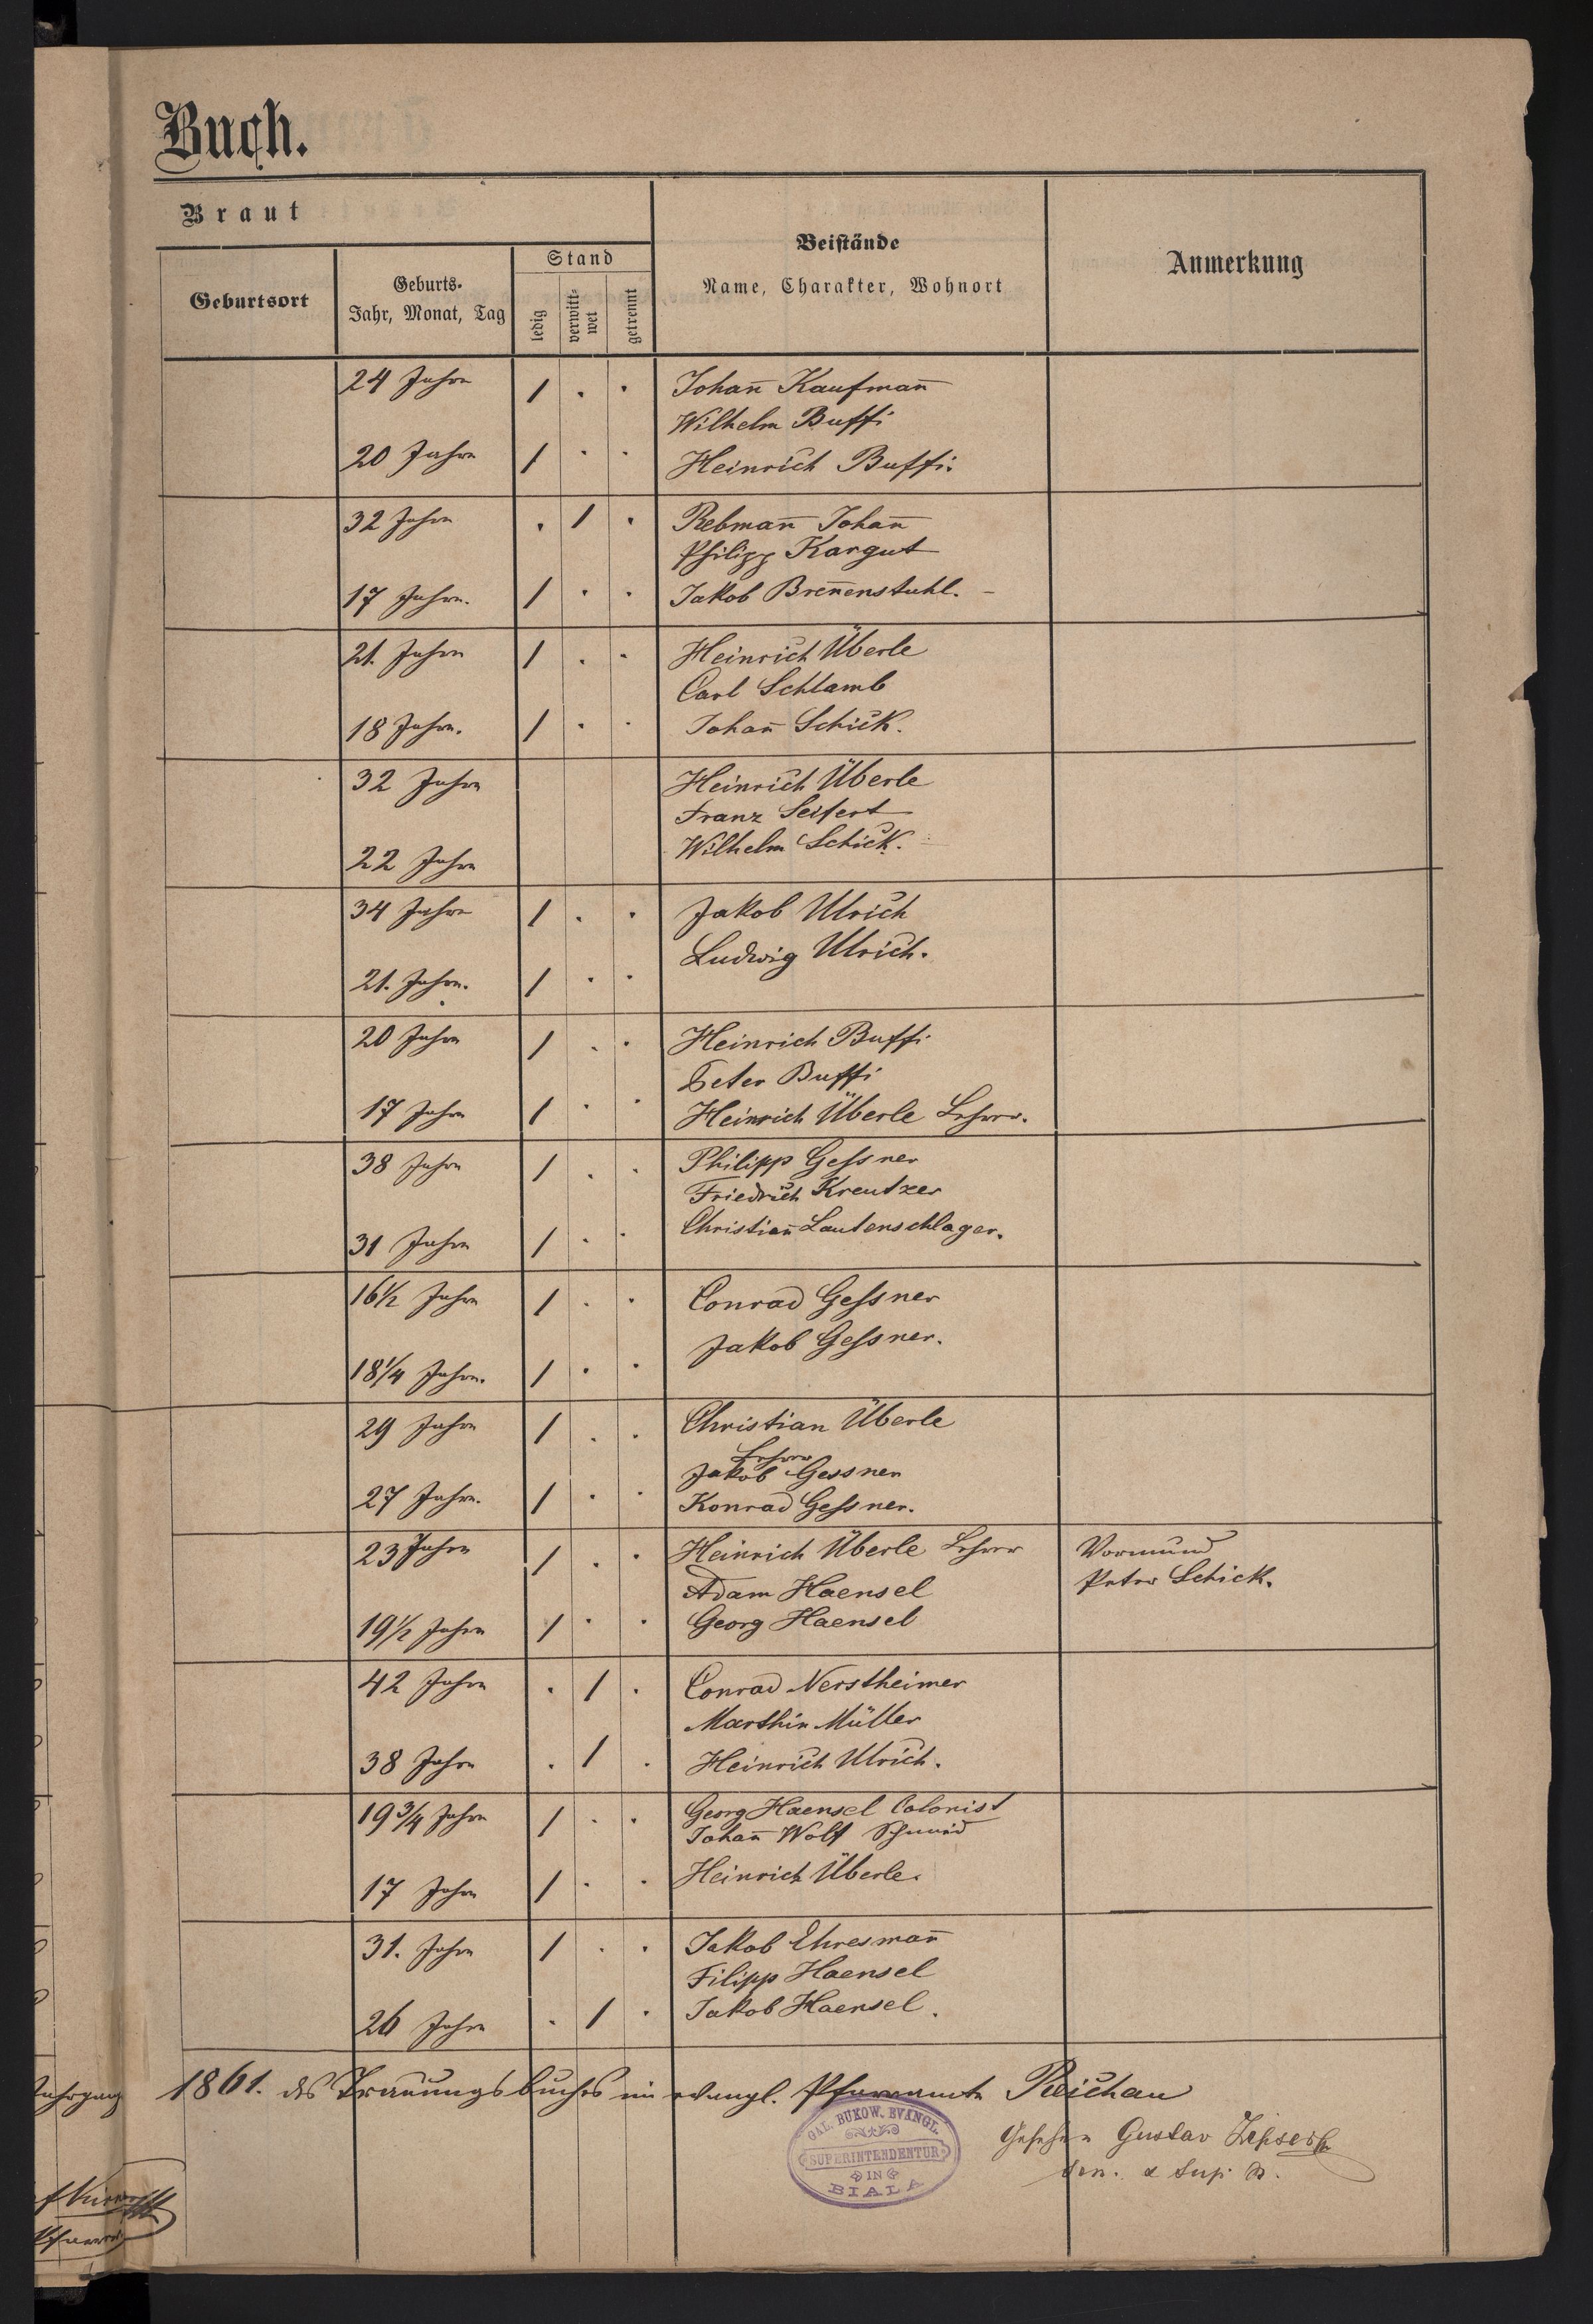 Buch.
Braut
Beistände
Name, Charakter, Wohnort
Anmerkung
Geburtsort
Geburts-
Jahr, Monat, Tag
Stand
ledig
verwitt-
wet
getrennt
24 Jahre 1 . . Johan̄ Kaufman̄
Wilhelm Buffi
20 Jahre 1 . . Heinrich Buffi.
32 Jahre . 1 . Rebman̄ Johan̄
Philipp Kargut
17 Jahre. 1 . . Jakob Bren̄enstuhl. –
21. Jahre 1 . . Heinrich Überle
Carl Schlamb
18 Jahre. 1 . . Johan̄ Schick.
32 Jahre Heinrich Überle
Franz Seifert
Wilhelm Schick.
22 Jahre
34 Jahre 1 . . Jakob Ulrich
Ludwig Ulrich.
21. Jahre. 1 . .
20 Jahre 1 . . Heinrich Buffi
Peter Buffi
17 Jahre 1 . . Heinrich Überle Lehrer.
38 Jahre 1 . . Philipp Gessner
Friedrich Kreutzer
31 Jahre 1 . . Christian̄ Lautenschlager.
16½ Jahre 1 . . Conrad Gessner
Jakob Gessner.
18¼ Jahre. 1 . .
29 Jahre 1 . . Christian Überle
Lehrer
Jakob Gessner
27 Jahre. 1 . . Konrad Gessner.
23 Jahre 1 . . Heinrich Überle Lehrer Vormund
Adam Haensel Peter Schick.
19½ Jahre 1 . . Georg Haensel
42 Jahre . 1 . Conrad Nerstheimer
Marthin Müller
38 Jahre . 1 . Heinrich Ulrich.
19¾ Jahre 1 . . Georg Haensel Colonist
Johan̄ Wolf Schmid
17 Jahre 1 . . Heinrich Überle.
31. Jahre 1 . . Jakob Ehresman̄
Filipp Haensel
26 Jahre . 1 . Jakob Haensel.
Jahrgang 1861. des Trauungsbuches im evangl. Pfarramte Reichau
GAL. BUKOW. EVANGL.
SUPERINTENDENTUR
IN
BIALA
Gesehen Gustav Zipser
Sen. & Sup.
Pfarrer